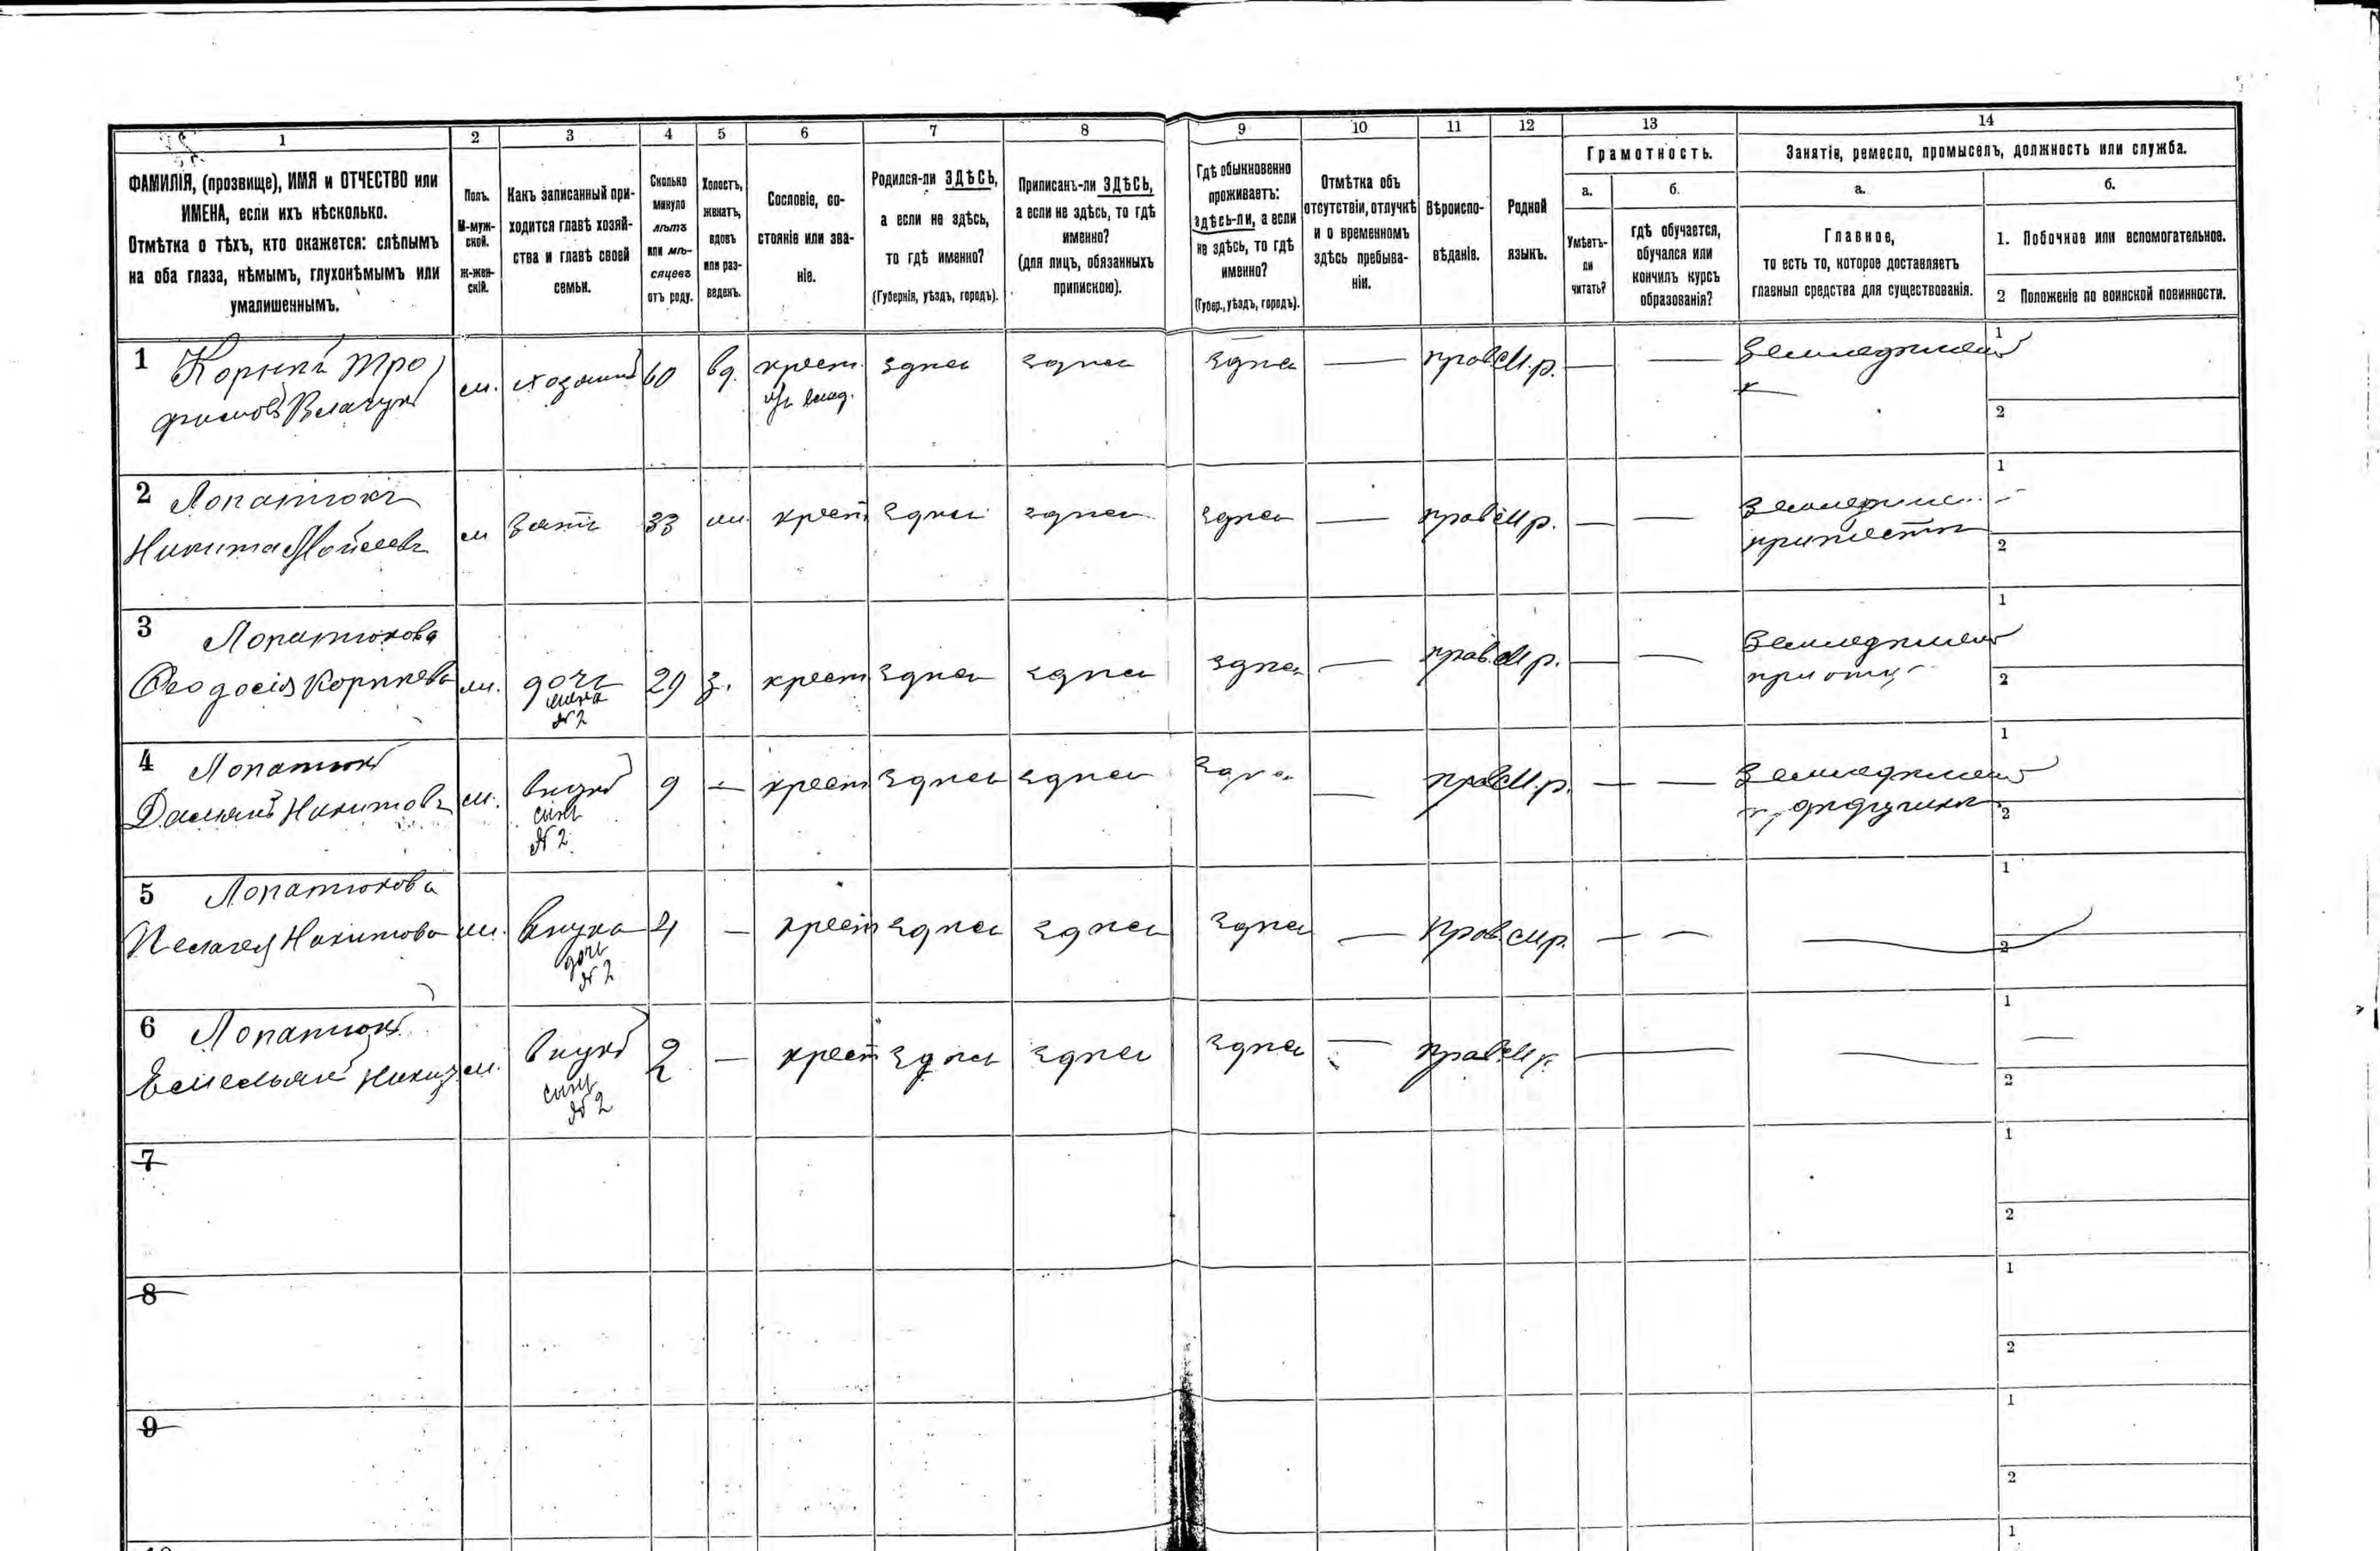 1 2 3 4 5 6 7 8 9 10 11 12 13 14
ФАМИЛІЯ, (прозвище), ИМЯ и ОТЧЕСТВО или
ИМЕНА, если ихъ нѣсколько.
Отмѣтка о тѣхъ, кто окажется: слѣпымъ
на оба глаза, нѣмымъ, глухонѣмымъ или
умалишеннымъ.
Полъ.
М-муж-
ской.
Ж-жен-
скій.
Какъ записанный при-
ходится главѣ хозяй-
ства и главѣ своей
семьи.
Сколько
минуло
лѣтъ
или мѣ-
сяцевъ
отъ роду.
Холостъ,
женатъ,
вдовъ
или раз-
веденъ.
Сословіе, со-
стояніе или зва-
ніе.
Родился-ли ЗДѢСЬ,
а если не здѣсь,
то гдѣ именно?
(Губернія, уѣздъ, городъ).
Приписанъ-ли ЗДѢСЬ,
а если не здѣсь, то гдѣ
именно?
(для лицъ, обязанныхъ
припискою).
Гдѣ обыкновенно
проживаетъ:
здѣсь-ли, а если
не здѣсь, то гдѣ
именно?
(Губер., уѣздъ, городъ).
Отмѣтка объ
отсутствіи, отлучкѣ
и о временномъ
здѣсь пребыва-
ніи.
Вѣроиспо-
вѣданіе.
Родной
языкъ.
Грамотность.
а.
Умѣетъ-
ли
читать?
б.
гдѣ обучается,
обучался или
кончилъ курсъ
образованія?
Занятіе, ремесло, промыселъ, должность или служба.
а.
Главное,
то есть то, которое доставляетъ
главныя средства для существованія.
б.
1. Побочное или вспомогательное.
2 Положеніе по воинской повинности.
1 Корнилъ Тро
фимовъ
м. хозяинъ 60 вд. крест. здѣсь здѣсь здѣсь — прав. м.р. — — Земледѣлецъ
1
2
2 Лопатюкъ
Никита Мойсеевъ
м зять 33 ж. крест здѣсь здѣсь здѣсь — прав м.р. — —
1
2
3 Лопатюкова
Феодосія Корнилова
ж. дочь 29 з. крест здѣсь здѣсь здѣсь — прав. м.р. — — Земледѣлецъ
жена
№ 2
при отцѣ
1
2
4 Лопатюкъ
Даміанъ Никитовъ
м. внукъ 9 — крест здѣсь здѣсь здѣсь — прав м.р. — — Земледѣлецъ
сынъ
№ 2
1
2
5 Лопатюкова
Пелагея Никитова
ж. внука 4 — крест здѣсь здѣсь здѣсь — прав. м.р. — — —
дочь
№ 2
1
2
6 Лопатюкъ
Емельянъ Никит
м. внукъ 2 — крест здѣсь здѣсь здѣсь — прав. м.р. — —
сынъ
№ 2
1
2
7
1
2
8
1
2
9
1
2
1